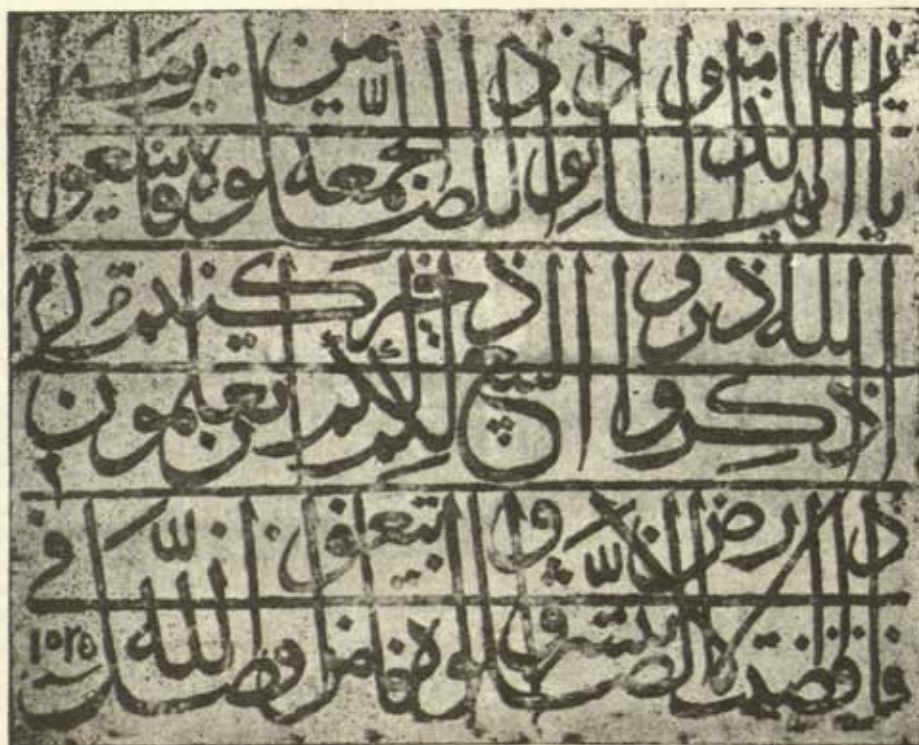 يا ايها الذين امنوا اذا نودي للصلوة من يوم الجمعة فاسعوا الى
ذكر الله وذروا البيع ذلكم خير لكم ان كنتم تعلمون
فاذا قضيت الصلوة فانتشروا في الارض وابتغوا من فضل الله
١٠٢٥